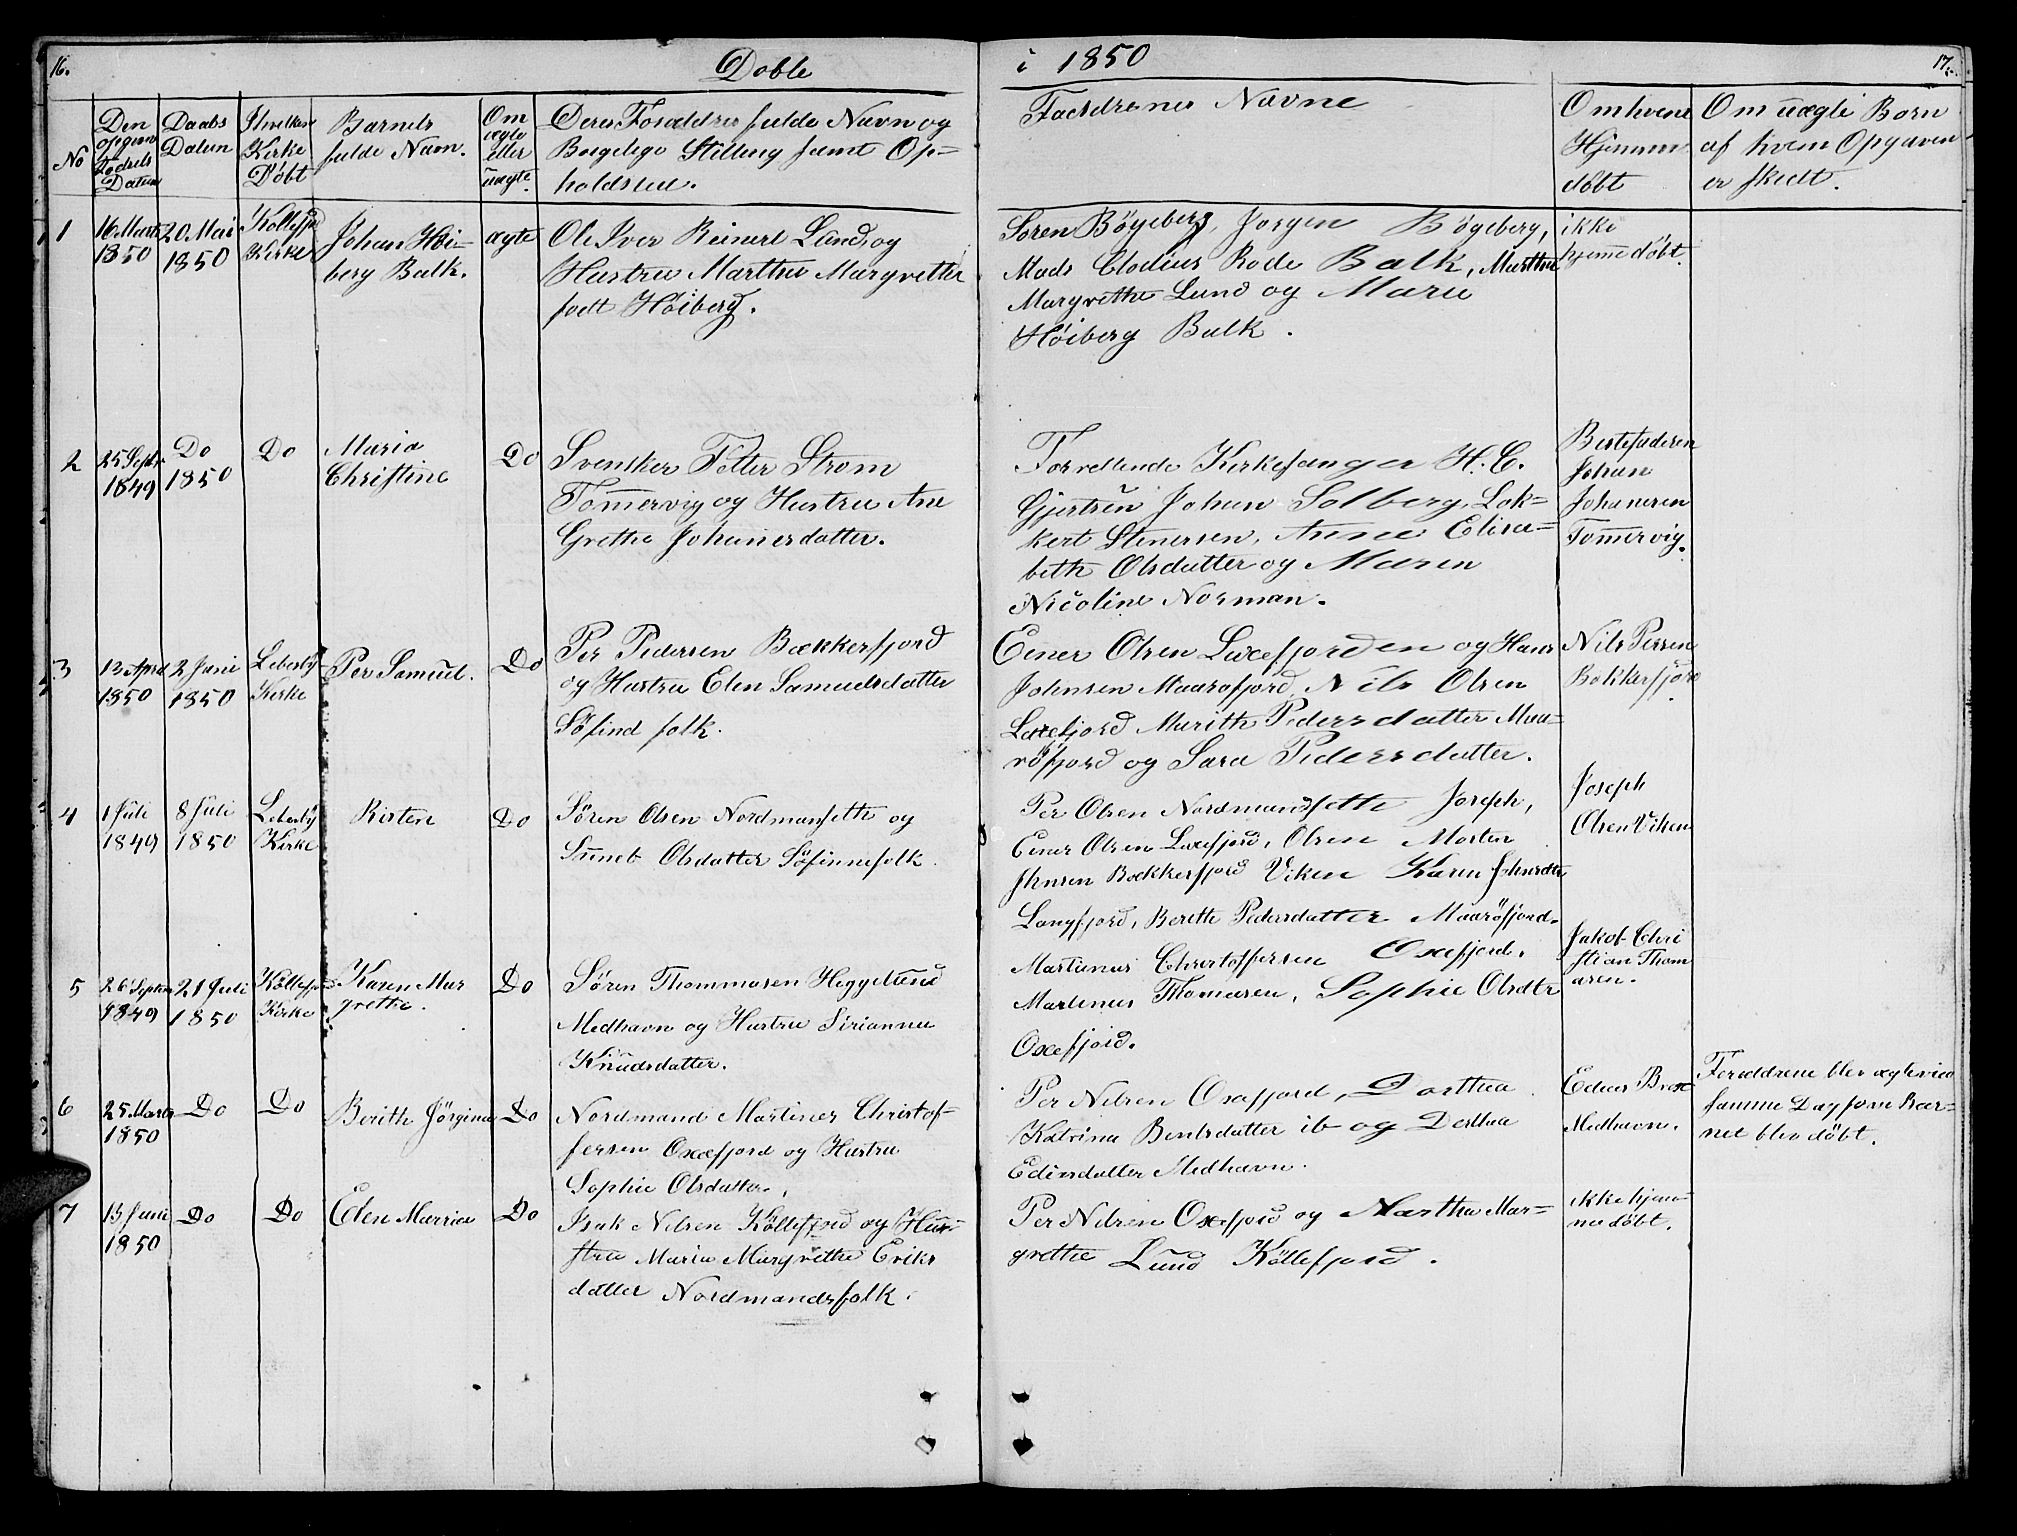 16.
Döbte
i 1850
17.
No
Den
opgivn
Födsels
Datum
Daabs
Datum
I hvilken
Kirke
Döbt
Barnets
fulde Navn.
Om
ægte
eller
uægte.
Deres Foræddres fulde Navn og
Borgelige Stilling samt Op=
holdsted.
Faddrenes Navne
Om hvem
Hjemme
döbt
Om uægte Born
af hvem Opgaven
er skedt.
1
16 Marts
1850
20 Mai
1850
Köllefjd
Kirke
Johan Höi=
berg Balk.
ægte
Ole Iver Reinert Lund og
Hustru Marthe Margrethe
født Höiberg.
Soren Bögeberg, Jorgen Bögeberg,
Mads Clodius Rode Balk, Marthe
Margrethe Lund og Maria
Höiberg Balk.
ikke
hjemedöbt.
2
25 Septr
1849
Do
1850
Do
Maria
Christine
Do
Svensker Petter Strom
Tomervig og Hustru Ane
Grethe Johanesdatter.
Forrettende Kirkesanger H. C.
Gjertsen Johan Solberg, Lok=
kert Stenersen, Anne Elisa=
beth Olsdatter og Maren
Nicoline Norman.
Bestefaderen
Johan
Johanesen
Tomervig.
3
13 April
1850
2 Juni
1850
Lebesby
Kirke
Per Samuel.
Do
Per Pedersen Bækkerfjord
og Hustru Elen Samuelsdatter
Söfind folk.
Einer Olsen Laxefjorden og Hans
Johnsen Maaröfjord, Nils Olsen
Laxefjord Marith Pedersdatter Maa=
röfjord og Sara Pedersdatter.
Nils Persen
Bekkerfjord
4
1 Juli
1849
8 Juli
1850
Lebesby
Kirke
Kirsten
Do
Sören Olsen Nordmanseth og
Suneb Olsdatter Söfinnefolk.
Per Olsen Nordmandsetth Joseph,
Einer Olsen Laxefjord, Olsen Morten
Jhnsen Bækkerfjord Viken Karen Johnsdtr
Langfjord, Berette Pedersdatter Maaröfjord.
Joseph
Olsen Viken
5
26 Septem
1849
21 Juli
1850
Köllefjr
Kirke
Karen Mar
grethe.
Do
Sören Thommasen Heggelund
Medhavn og Hustru Sirianna
Knudsdatter.
Martinus Christoffersen Oxefjord.
Martinus Thomasen, Sophie Olsdtr
Oxefjord.
Jakob Chri
stian Thom
asen.
6
25 Marts
1850
Do
Do
Berith Jörgina
Do
Nordmand Martines Christof=
fersen Oxefjord og Hustru
Sophie Olsdatter.
Per Nilsen Oxefjord, Dorthea
Katrina Bentsdatter ib og Dorthea
Edisdatter Medhavn.
Edias Brox
Medhavn.
Foræddrene blev ægteviet
samme Dag som Bar=
net blev döbt.
7
13 Juni
1850
Do
Do
Elen Marria
Do
Isak Nilsen Köllefjord og Hus=
tru Maria Margrethe Eriks
datter Nordmandsfolk.
Per Nilsen Oxefjord og Martha Mar=
grethe Lund Köllefjord.
ikke hjem=
me döbt.